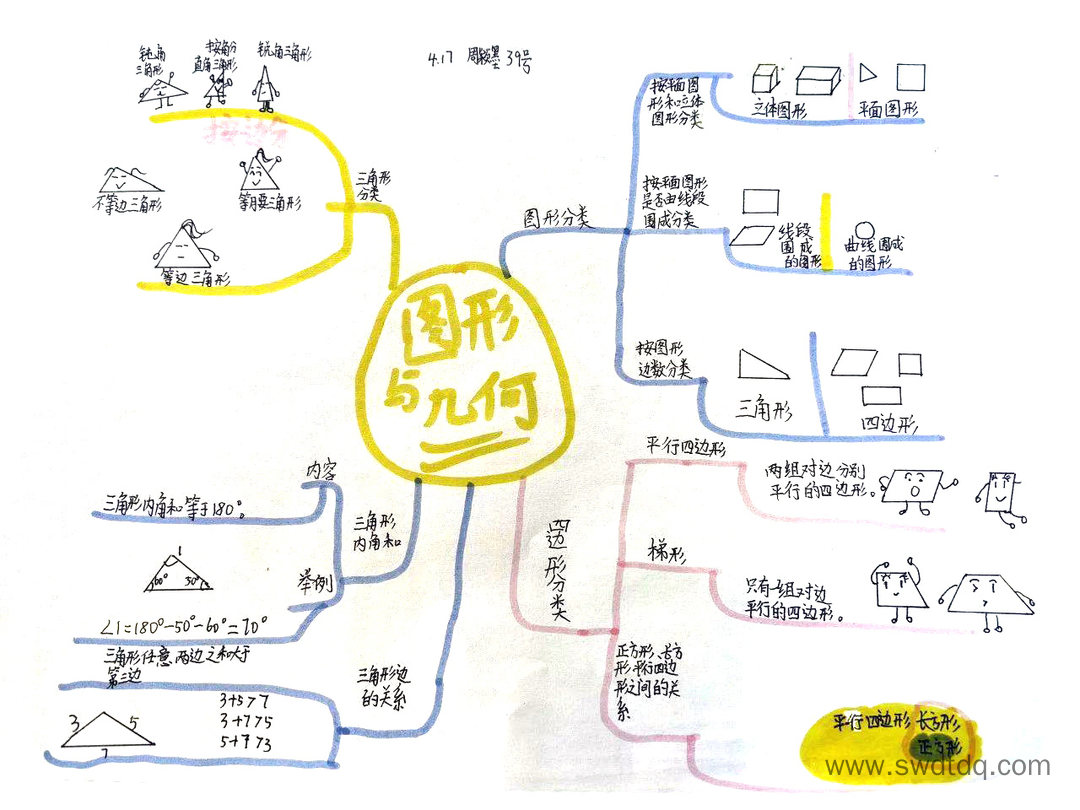 4.17 周颖墨 39号
图形
与几何
三角形
分类
按角分
钝角
三角形
直角三角形
锐角三角形
按边分
不等边三角形
等月要三角形
等边三角形
图形分类
按平面图
形和立体
图形分类
立体图形
平面图形
按平面图形
是否由线段
围成分类
线段
围成
的图形
曲线围成
的图形
按图形
边数分类
三角形
四边形
四边形分类
平行四边形
两组对边分别
平行的四边形。
梯形
只有一组对边
平行的四边形。
正方形、长方
形、平行四边
形之间的关
系
平行四边形 长方形
正方形
三角形
内角和
内容
三角形内角和等于180°
举例
1
60° 50°
∠1=180°-50°-60°=70°
三角形边
的关系
三角形任意两边之和大于
第三边
3 5
7
3+5>7
3+7>5
5+7>3
www.swdtdq.com